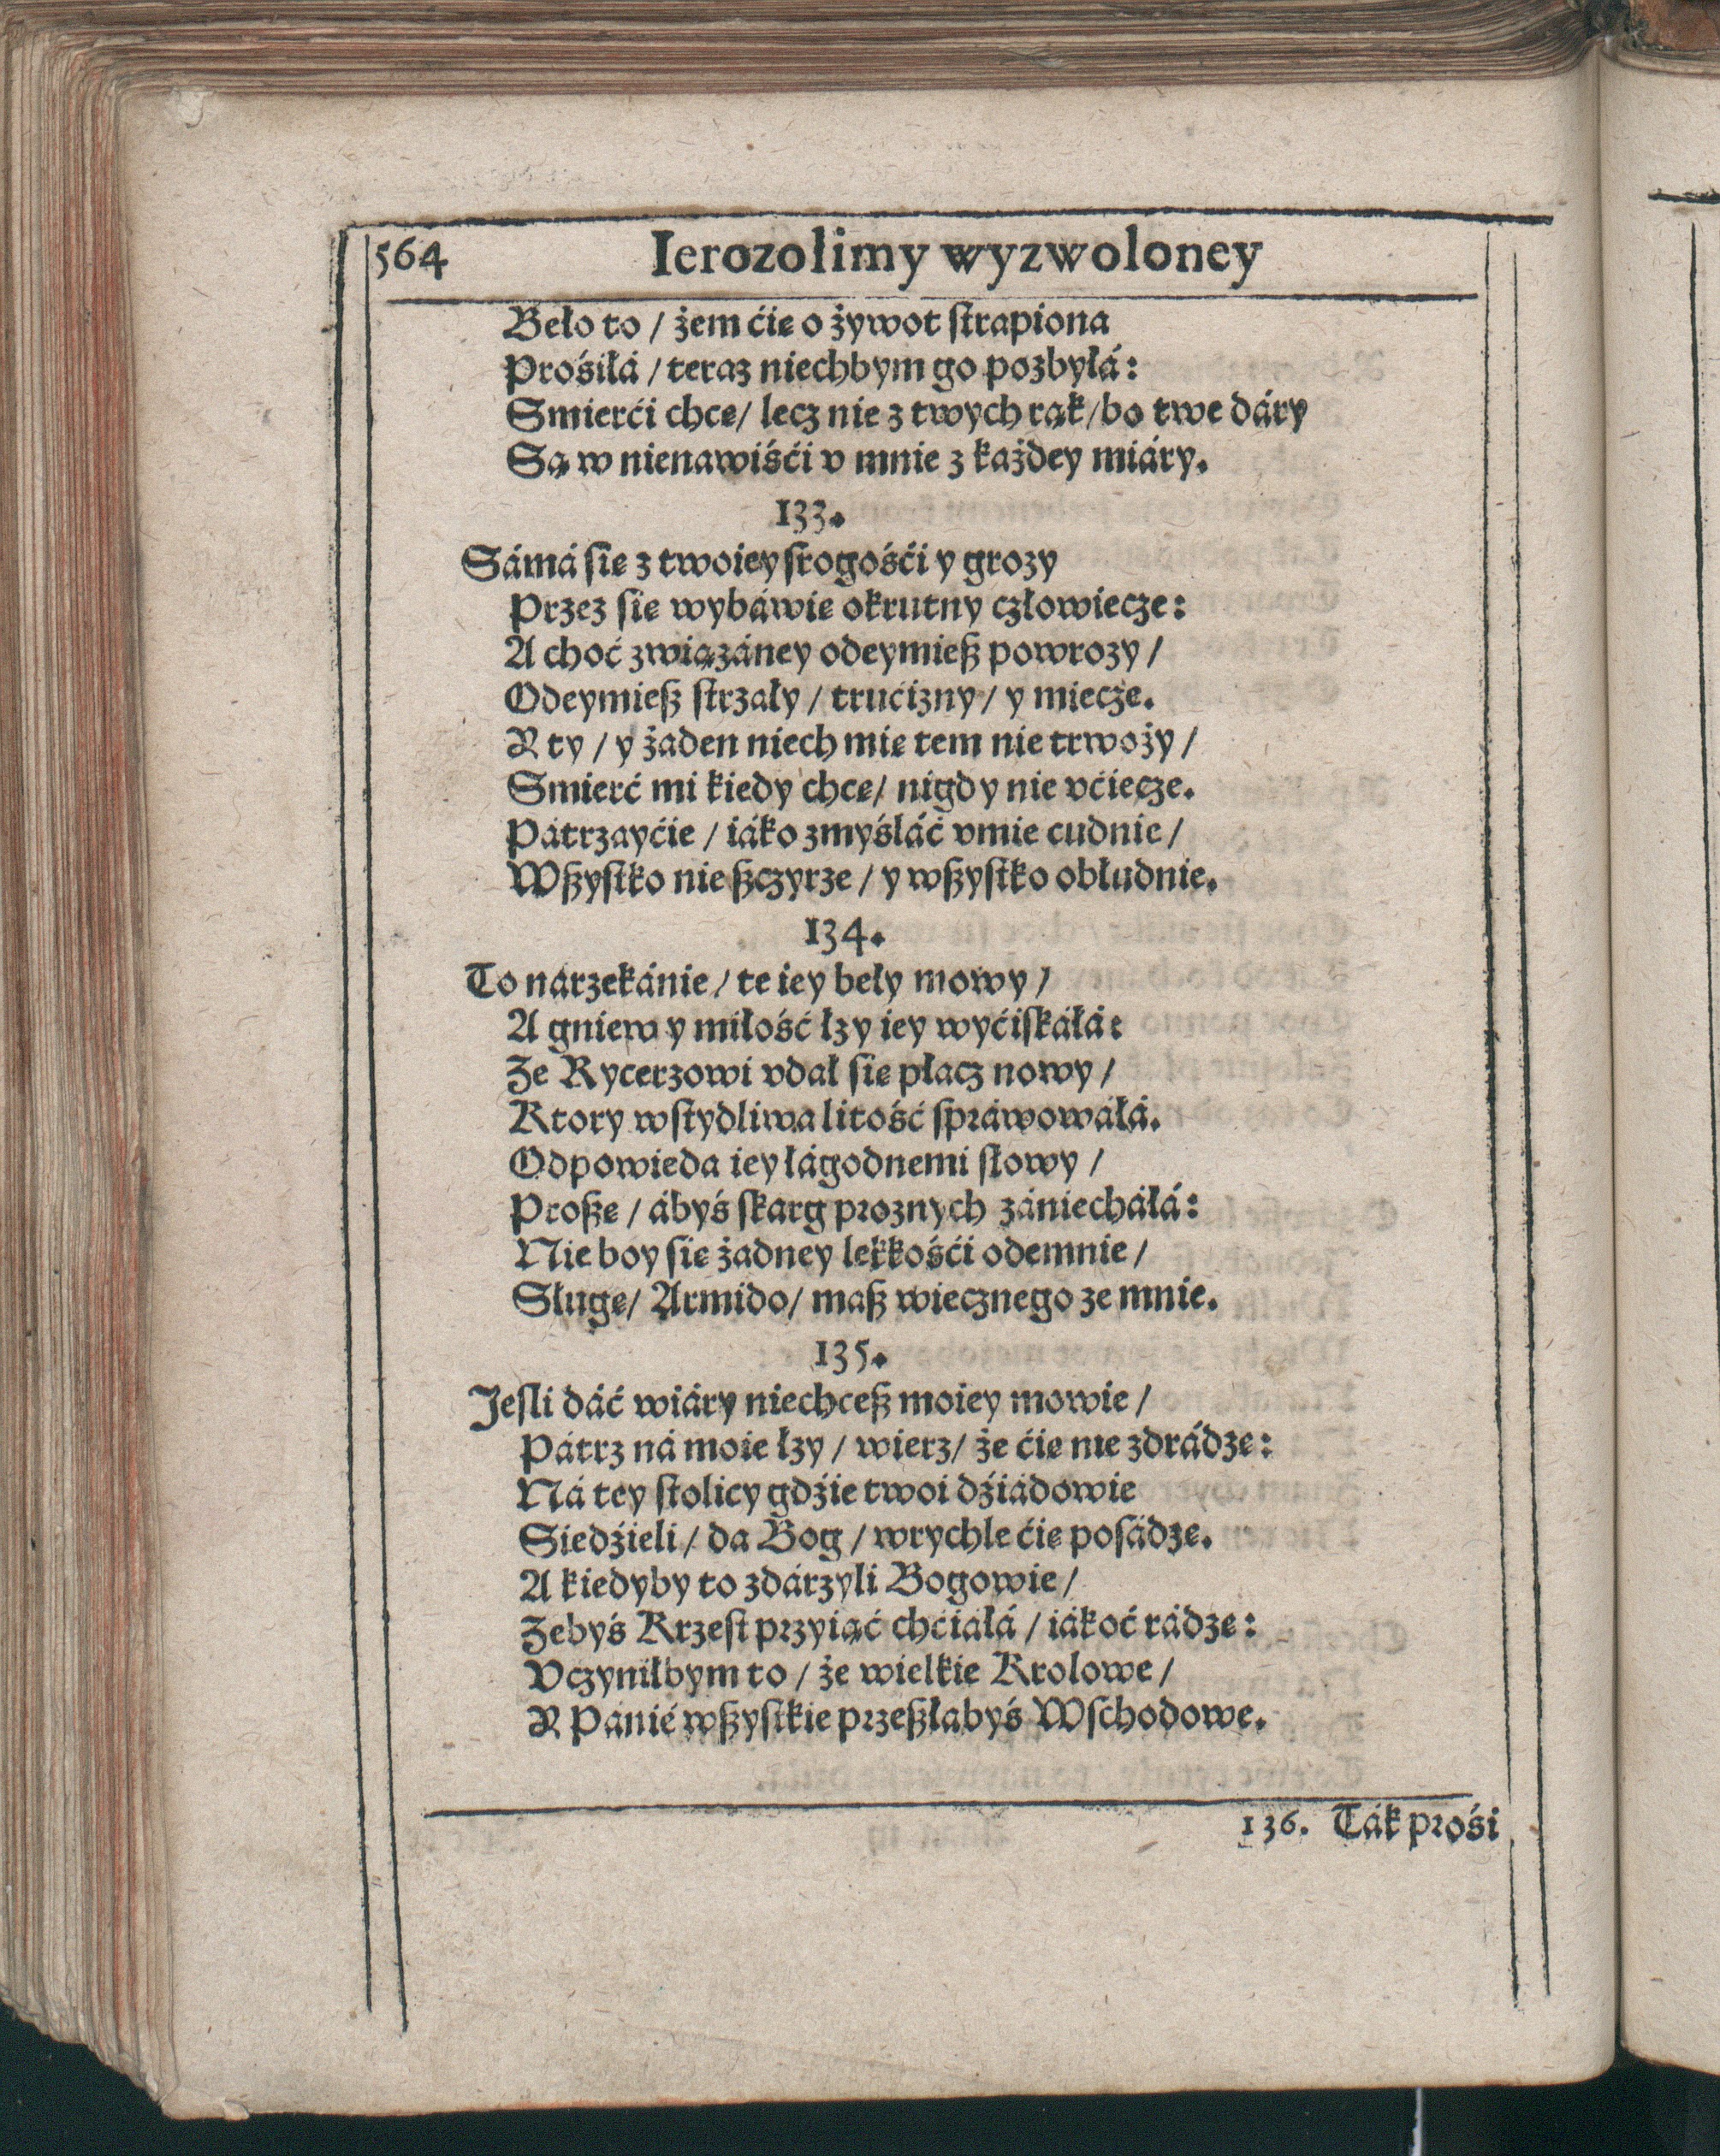 564 Ierozolimy wyzwoloney
Beło to / żem ćię o żywot strapiona
Prośiłá / teraz niechbym go pozbyłá:
Smierći chcę / lecz nie z twych rąk / bo twe dáry
Są w nienawiśći v mnie z każdey miáry.
133.
Sámá się z twoiey srogośći y grozy
Przez się wybáwię okrutny człowiecze:
A choć związáney odeymiesz powrozy /
Odeymiesz strzały / trućizny / y miecze.
Y ty / y żaden niech mię tem nie trwoży /
Smierć mi kiedy chcę / nigdy nie vćiecze.
Pátrzayćie / iáko zmyśláć vmie cudnie /
Wszystko nieszczyrze / y wszystko obłudnie.
134.
To nárzekánie / te iey beły mowy /
A gniew y miłość łzy iey wyćiskáłá:
Ze Rycerzowi vdał się płacz nowy /
Ktory wstydliwa litość spráwowáłá.
Odpowieda iey łágodnemi słowy /
Proszę / ábyś skarg proznych zániecháłá:
Nie boy się żadney lekkośći odemnie /
Sługę / Armido / masz wiecznego ze mnie.
135.
Jesli dáć wiáry niechcesz moiey mowie /
Pátrz ná moie łzy / wierz / że ćię nie zdrádzę:
Ná tey stolicy gdźie twoi dźiádowie
Siedźieli / da Bog / wrychle ćię posádzę.
A kiedyby to zdárzyli Bogowie /
Zebyś Krzest przyiąć chćiáłá / iákoć rádzę:
Vczyniłbym to / że wielkie Krolowe /
Y Pánié wszystkie przeszłabyś Wschodowe.
136. Ták prośi